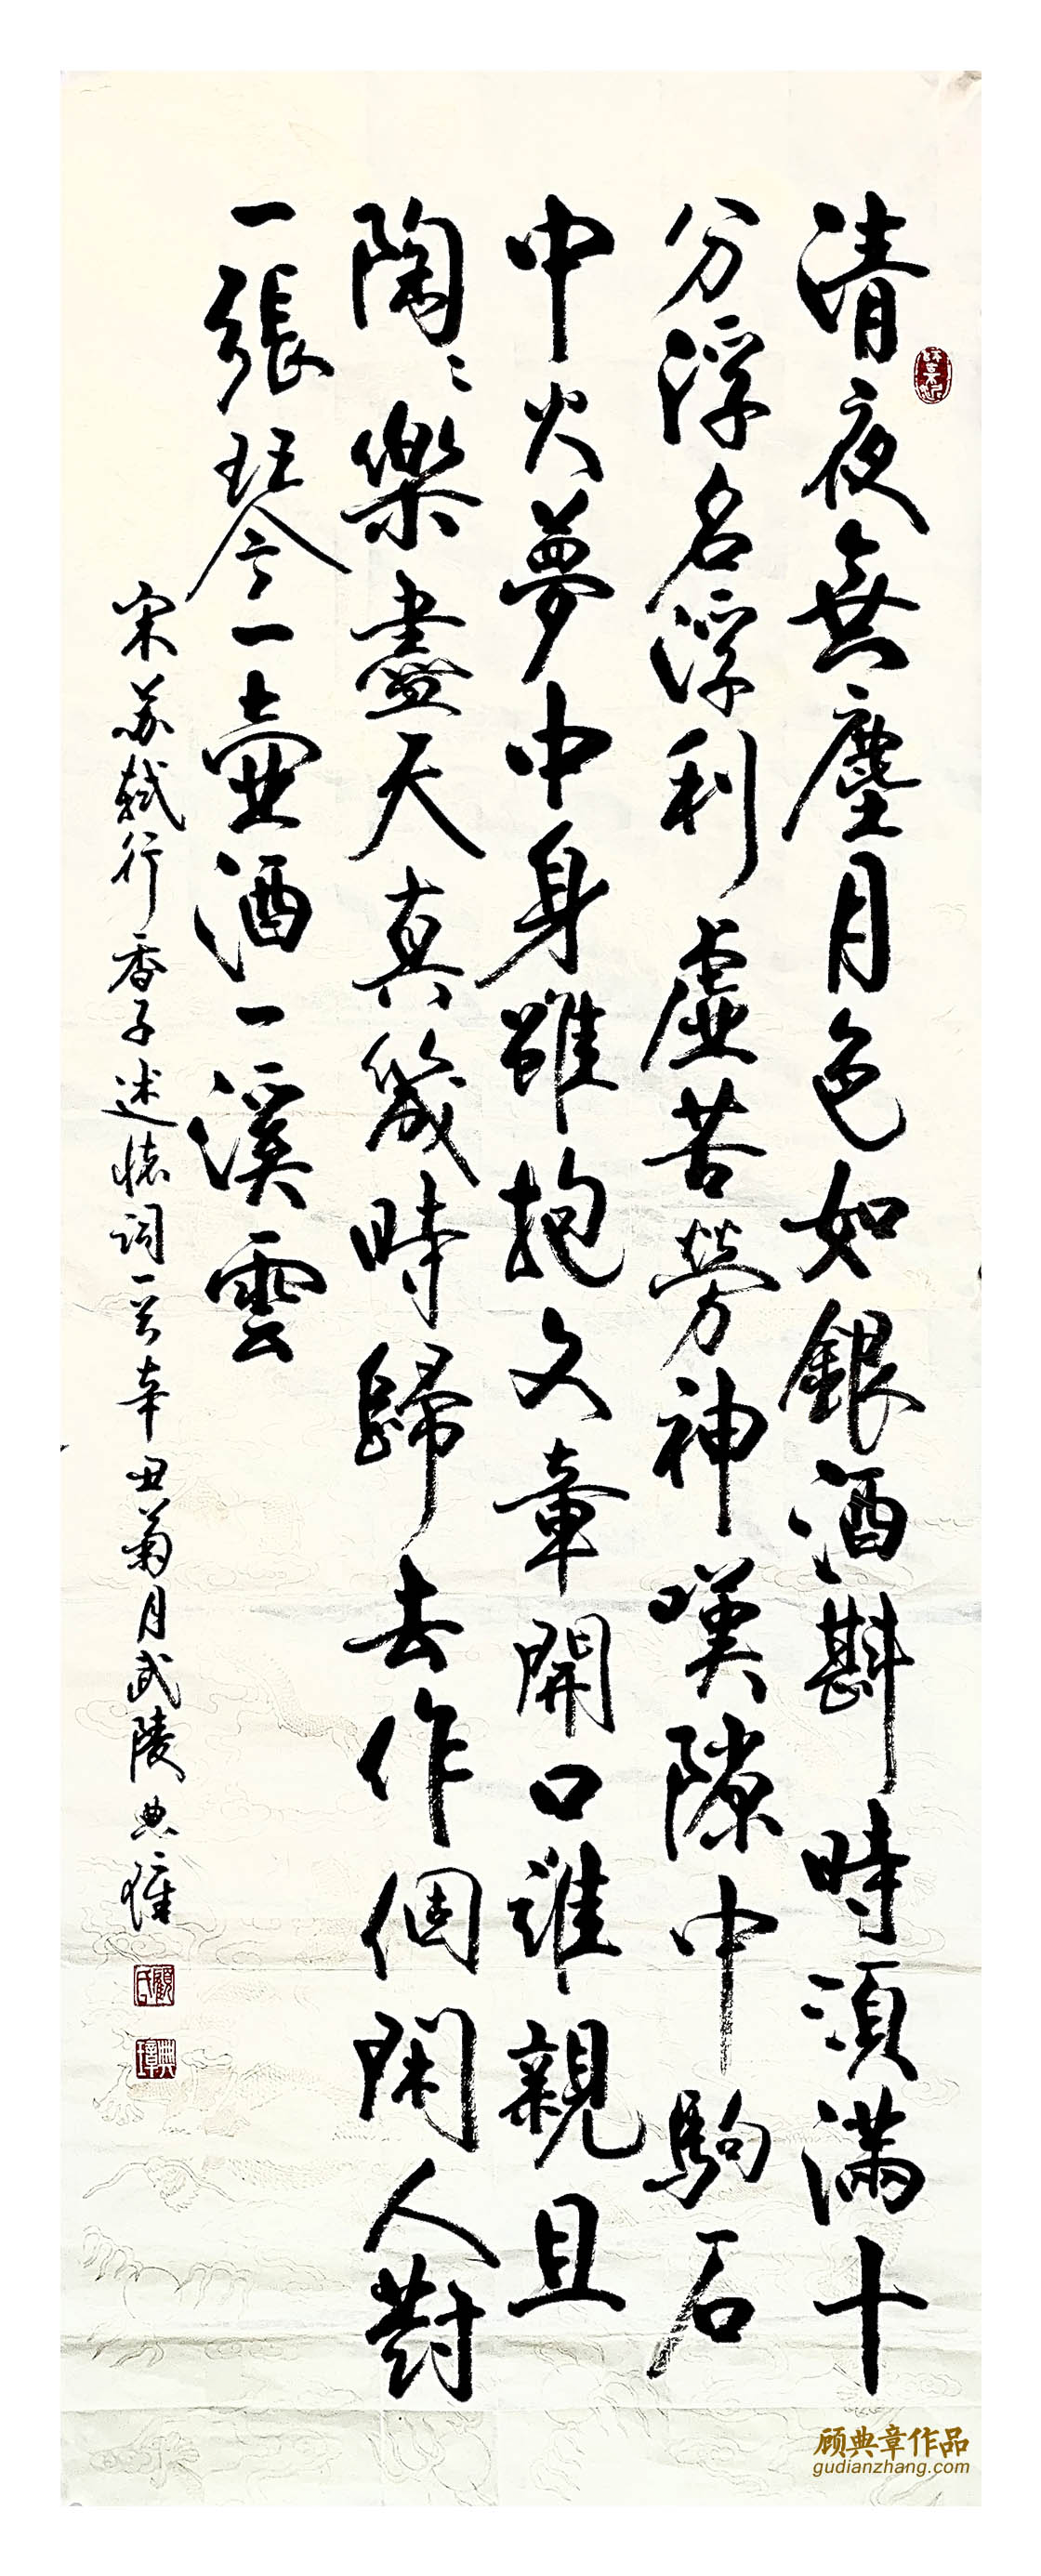 清夜無塵月色如銀酒斟時須滿十
分浮名浮利虛苦勞神嘆隙中駒石
中火夢中身雖抱文章開口誰親且
陶〻樂盡天真幾時歸去作個閑人對
一張琴一壺酒一溪雲
宋蘇軾行香子述懷詞一首辛丑菊月武陵典獐
顧氏
典璋
顾典章作品
gudianzhang.com